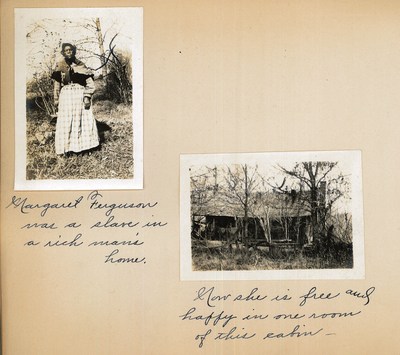 Margaret Ferguson
was a slave in
a rich man's
home.
Now she is free and
happy in one room
of this cabin —